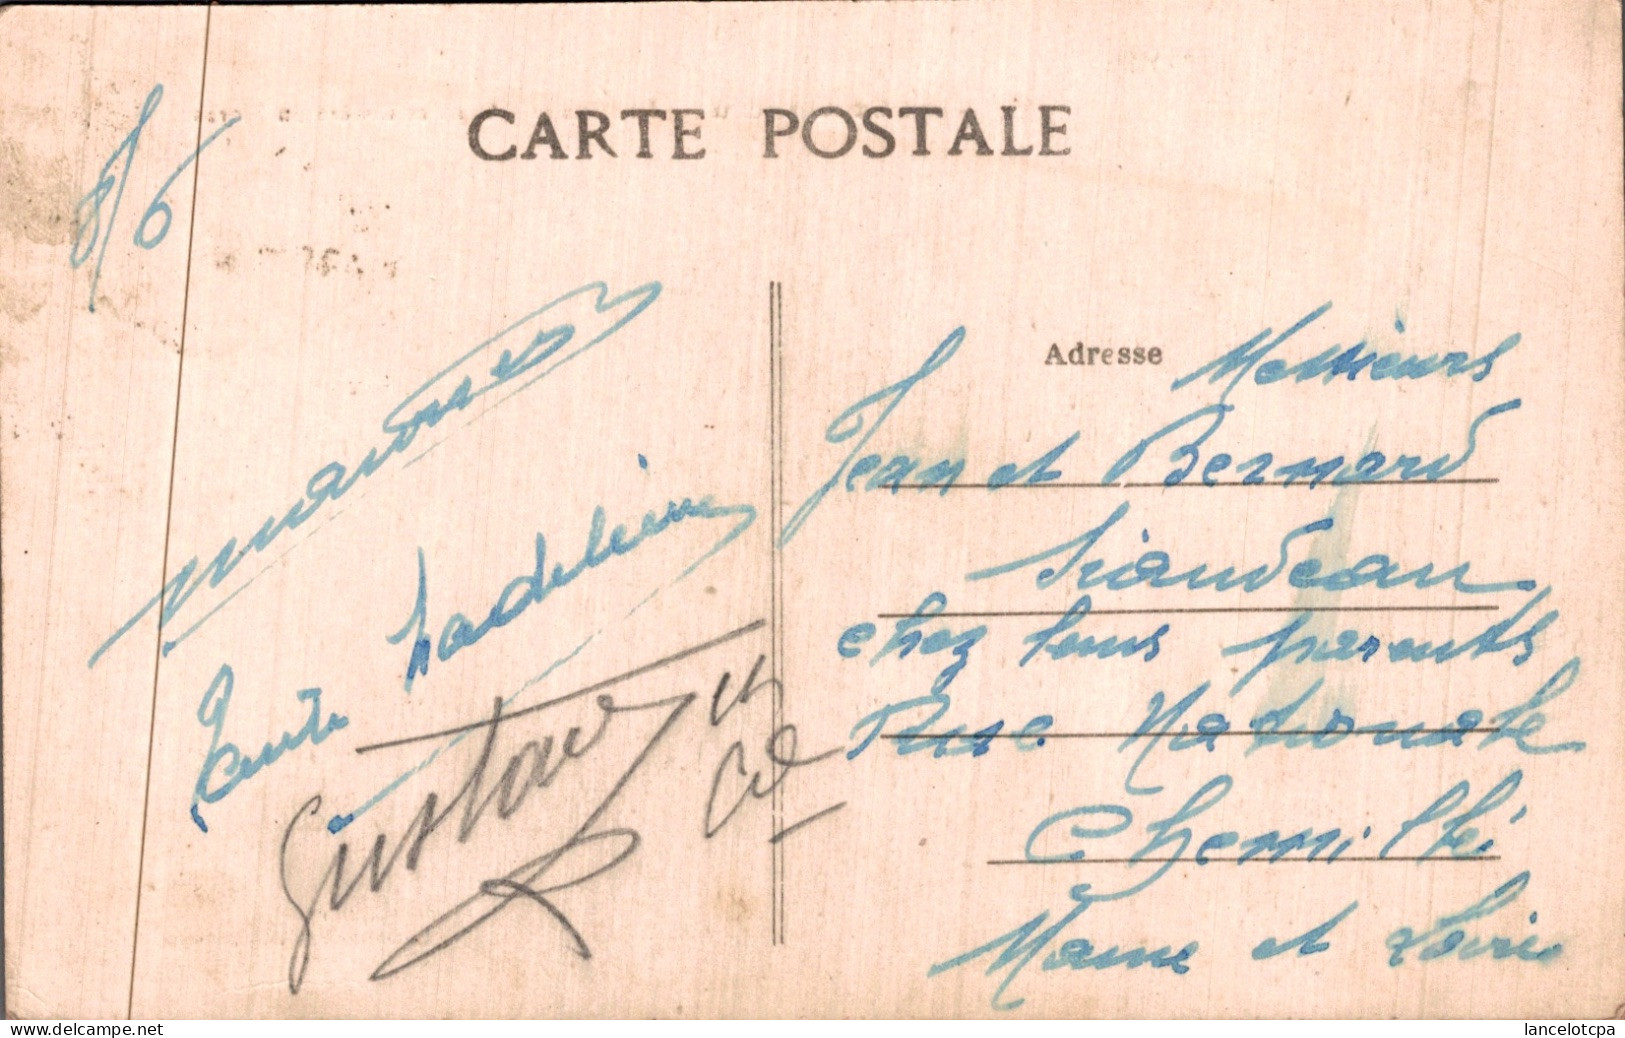 CARTE POSTALE
8/6
Tante Madeleine
Gustave
Adresse
Messieurs
Jean et Bernard
chez leurs parents
Rue Nationale
Chemillé
Maine et Loire
Delcampe.net
lancelotcpa